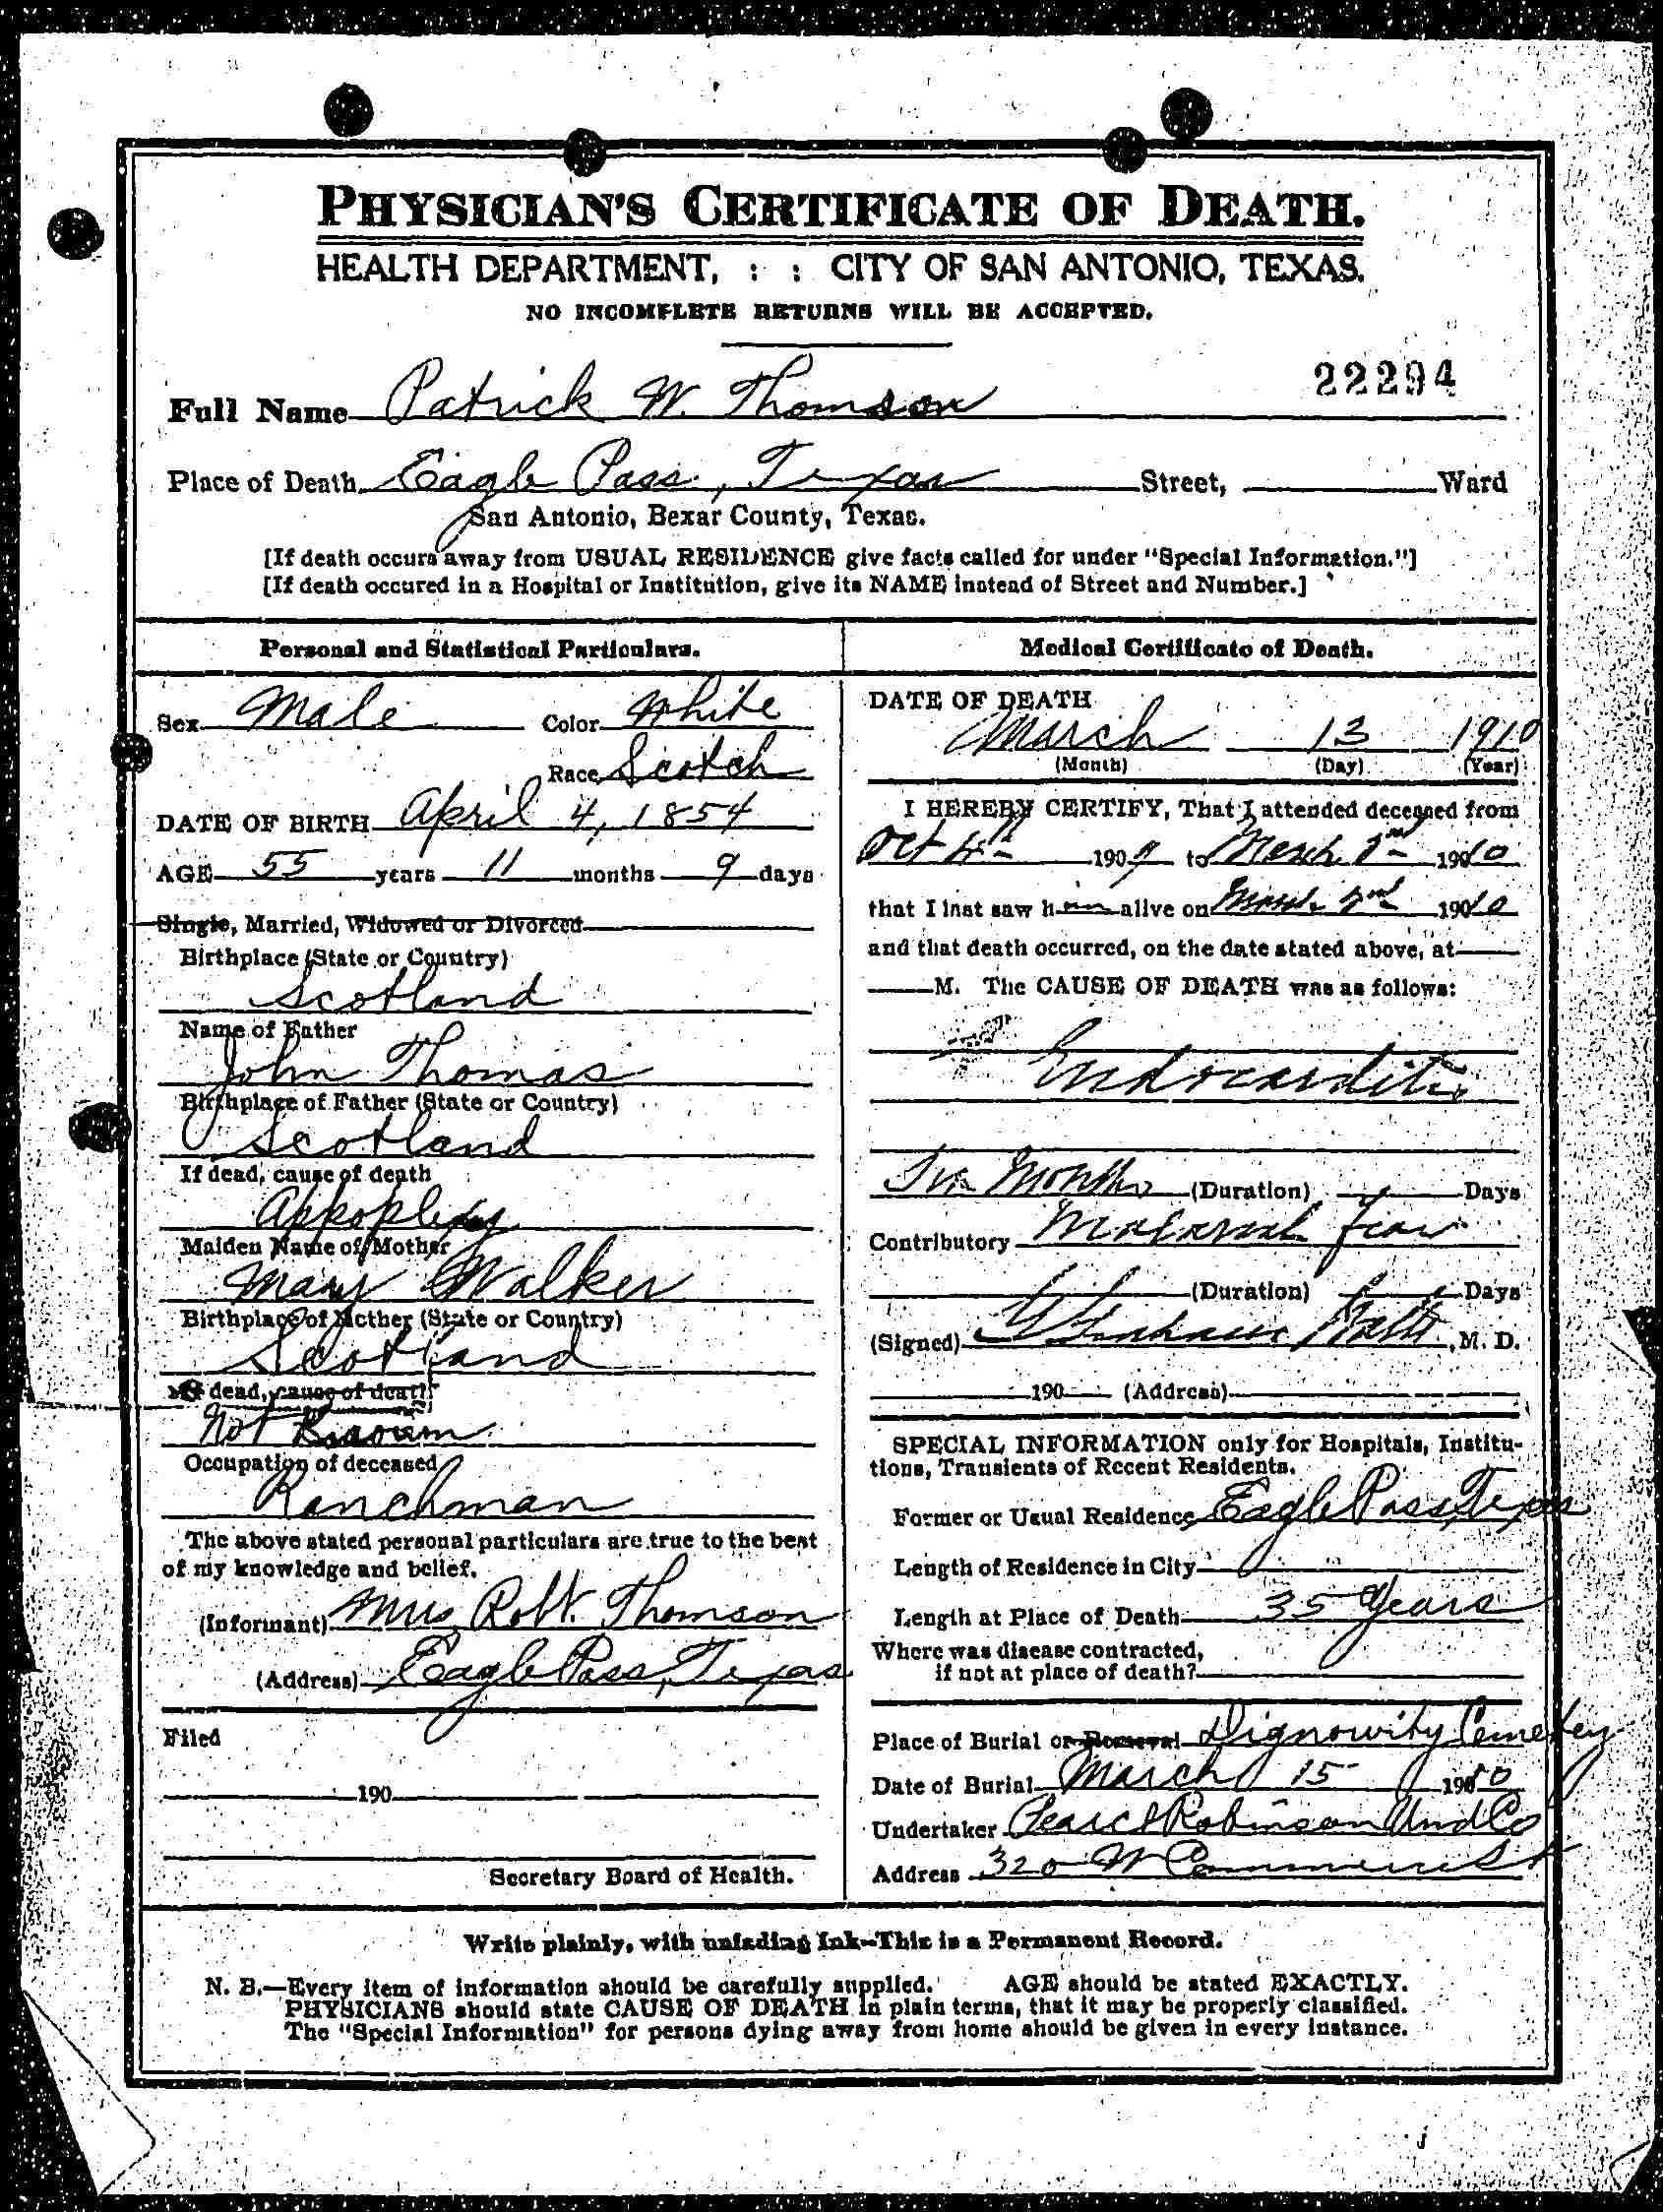 PHYSICIAN'S CERTIFICATE OF DEATH.
HEALTH DEPARTMENT, : : CITY OF SAN ANTONIO, TEXAS.
NO INCOMPLETE RETURNS WILL BE ACCEPTED.
22294
Full Name Patrick W. Thomson
Place of Death Eagle Pass, Texas Street, Ward
San Antonio, Bexar County, Texas.
[If death occurs away from USUAL RESIDENCE give facts called for under "Special Information."]
[If death occured in a Hospital or Institution, give its NAME instead of Street and Number.]
Personal and Statistical Particulars.
Sex Male Color White
Race Scotch
DATE OF BIRTH April 4, 1854
AGE 55 years 11 months 9 days
Single, Married, Widowed or Divorced
Birthplace (State or Country)
Scotland
Name of Father
John Thomas
Birthplace of Father (State or Country)
Scotland
If dead, cause of death
Appoplexy
Maiden Name of Mother
Mary Walker
Birthplace of Mother (State or Country)
Scotland
If dead, cause of death
Not Known
Occupation of deceased
Ranchman
The above stated personal particulars are true to the best
of my knowledge and belief.
(Informant) Mrs Robt. Thomson
(Address) Eagle Pass, Texas
Filed
190
Secretary Board of Health.
Medical Certificate of Death.
DATE OF DEATH
March 13 1910
(Month) (Day) (Year)
I HEREBY CERTIFY, That I attended deceased from
Oct 4th 1909 to March 2nd 1910
that I last saw him alive on March 2nd 1910
and that death occurred, on the date stated above, at
M. The CAUSE OF DEATH was as follows:
Endocarditis
Months (Duration) Days
Contributory Malarial
(Duration) Days
(Signed) M. D.
190 (Address)
SPECIAL INFORMATION only for Hospitals, Institu-
tions, Transients of Recent Residents.
Former or Usual Residence Eagle Pass, Texas
Length of Residence in City
Length at Place of Death 35 Years
Where was disease contracted,
if not at place of death?
Place of Burial or Removal Dignowity Cemetery
Date of Burial March 15 1910
Undertaker Pearce Robinson Und Co
Address 320 W Commerce St
Write plainly, with unfading Ink--This is a Permanent Record.
N. B.—Every item of information should be carefully supplied. AGE should be stated EXACTLY.
PHYSICIANS should state CAUSE OF DEATH in plain terms, that it may be properly classified.
The "Special Information" for persons dying away from home should be given in every instance.